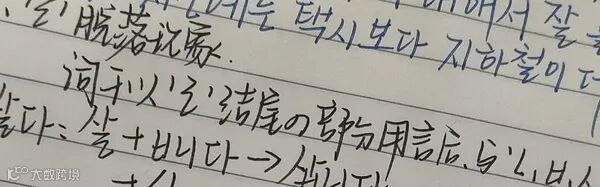 에는 택시보다 지하철이 더
'ㄹ' 脱落现象.
词干以'ㄹ'结尾の部分用言后, 与'ㄴ, ㅂ, ㅅ
살다: 살+ㅂ니다→삽니다
大数跨境